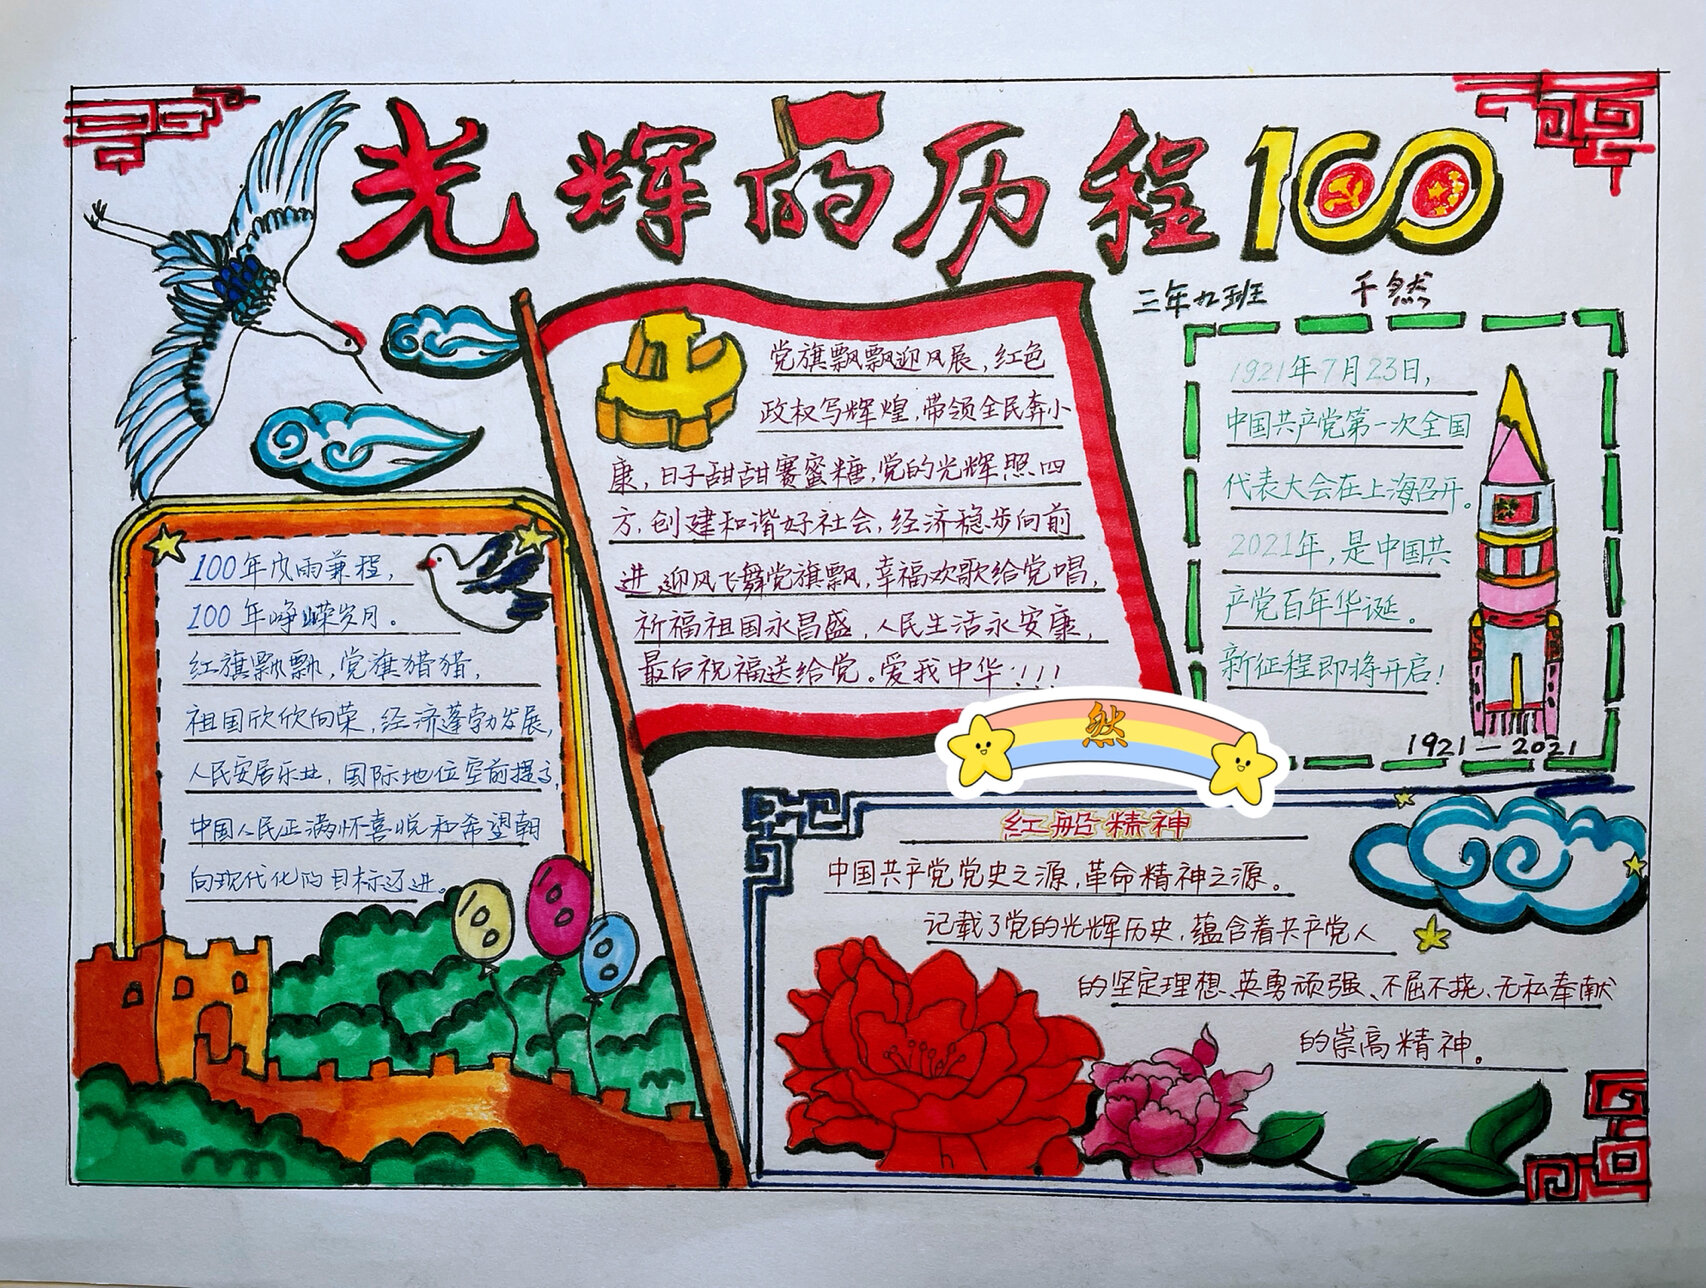 光辉的历程100
三年九班 千然
党旗飘飘迎风展，红色
政权写辉煌，带领全民奔小
康，日子甜甜赛蜜糖，党的光辉照四
方，创建和谐好社会，经济稳步向前
进，迎风飞舞党旗飘，幸福欢歌给党唱，
祈福祖国永昌盛，人民生活永安康，
最后祝福送给党。爱我中华！！！
1921年7月23日，
中国共产党第一次全国
代表大会在上海召开。
2021年，是中国共
产党百年华诞。
新征程即将开启！
1921—2021
100年风雨兼程，
100年峥嵘岁月。
红旗飘飘，党旗猎猎，
祖国欣欣向荣，经济蓬勃发展，
人民安居乐业，国际地位空前提高，
中国人民正满怀喜悦和希望朝
向现代化的目标迈进。
100
100
100
然
红船精神
中国共产党党史之源，革命精神之源。
记载了党的光辉历史，蕴含着共产党人
的坚定理想、英勇顽强、不屈不挠、无私奉献
的崇高精神。